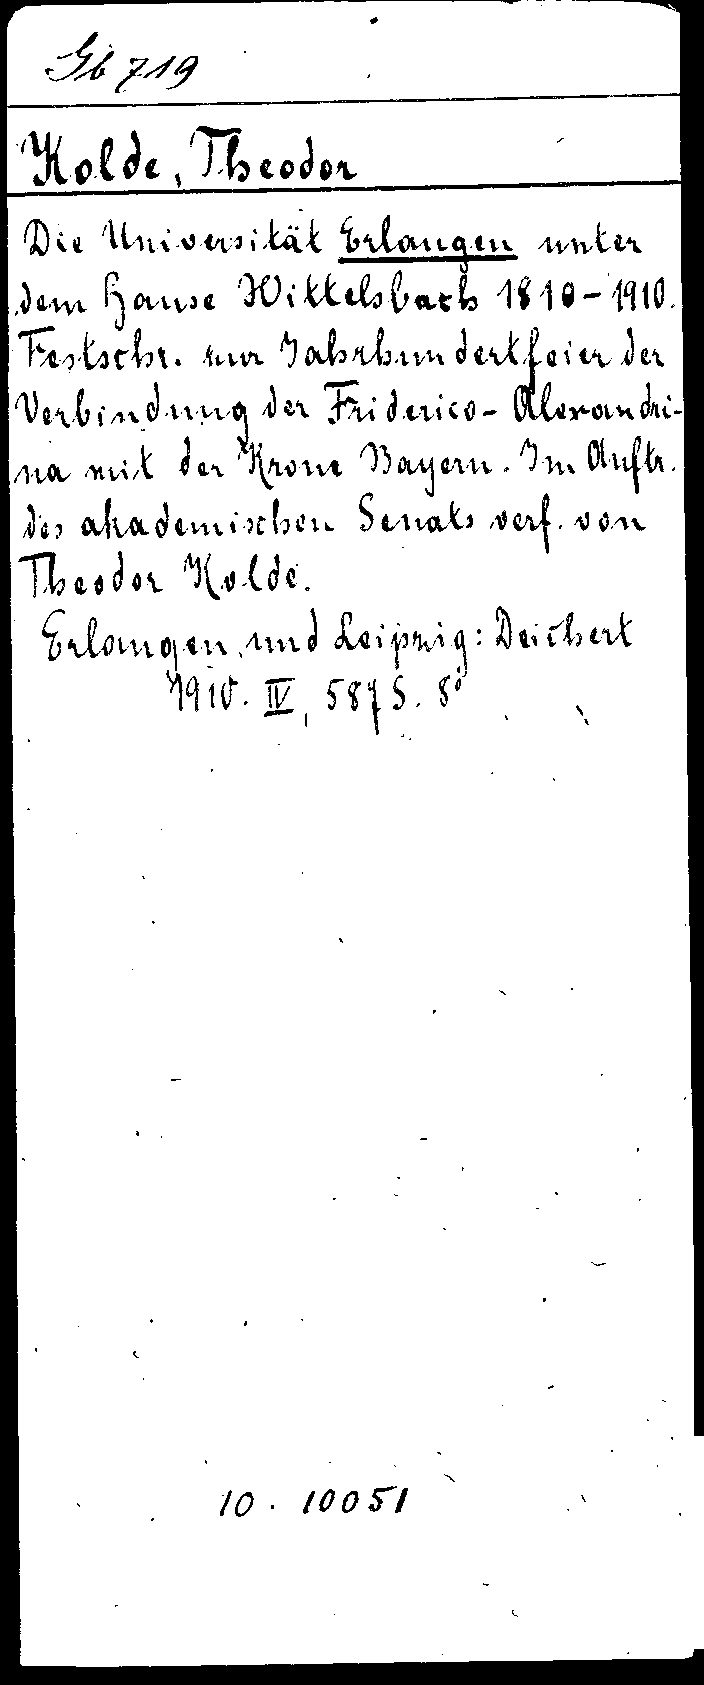 Gb 719
Kolde, Theodor
Die Universität Erlangen unter
dem Hause Wittelsbach 1810-1910.
Festschr. zur Jahrhundertfeier der
Verbindung der Friderico-Alexandri-
na mit der Krone Bayern. Im Auftr.
des akademischen Senats verf. von
Theodor Kolde.
Erlangen und Leipzig: Deichert
1910. IV, 587 S. 8°
10. 10051